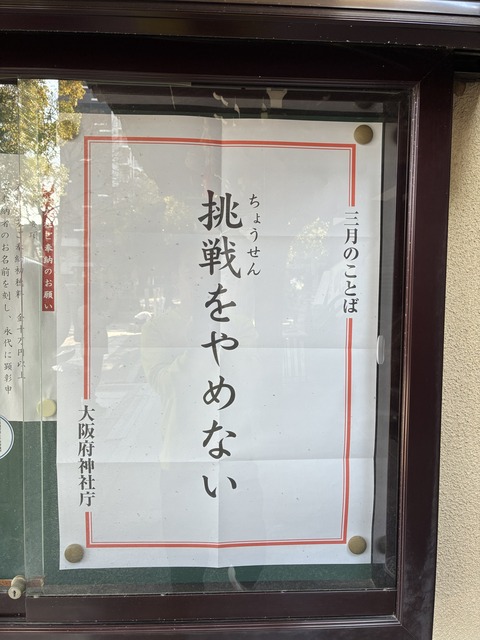 三月のことば
ちょうせん
挑戦をやめない
大阪府神社庁
奉納のお願い
納者のお名前を刻し、永代に顕彰申